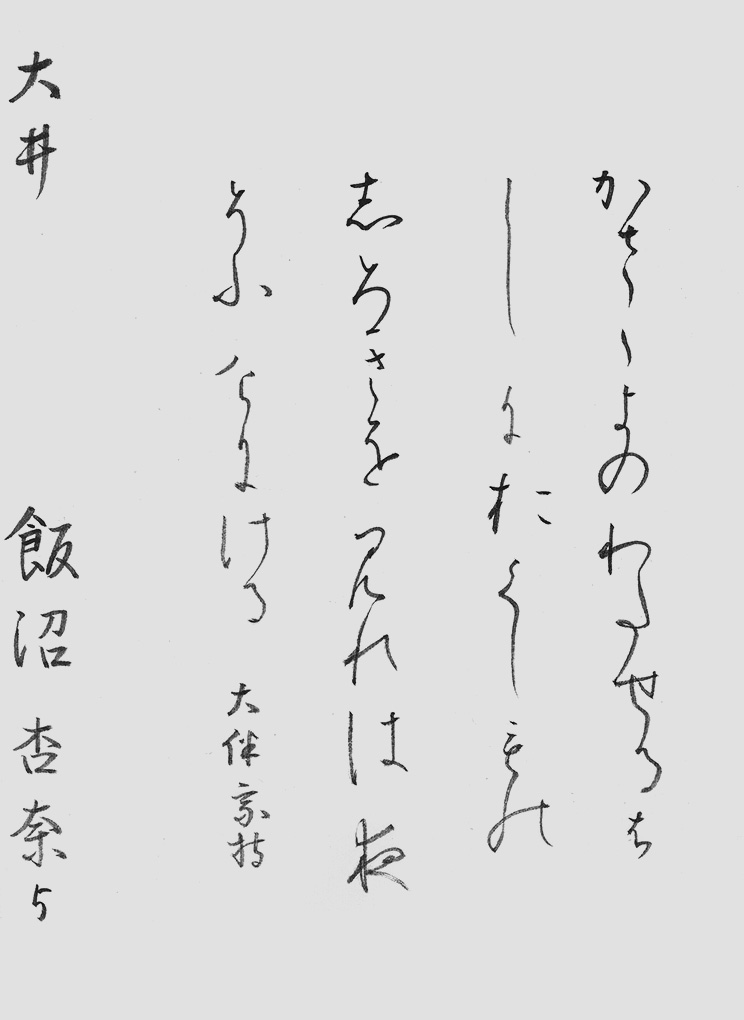 かさゝきのわたせるは
しにおくしもの
志ろきをみれは夜
そふけにける
大伴家持
大井 飯沼杏奈